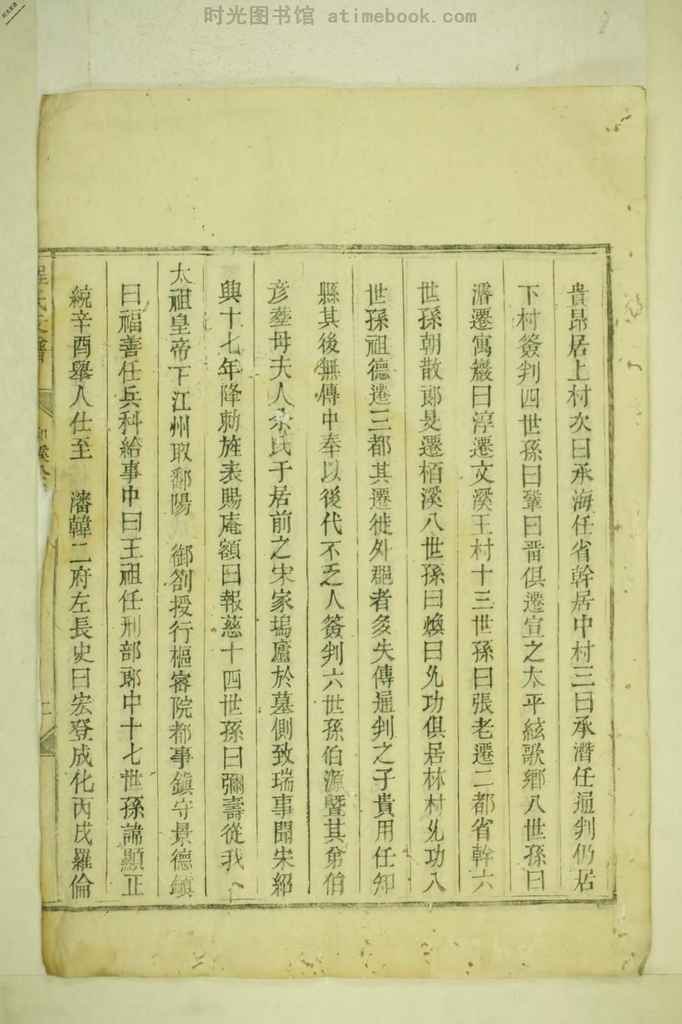 时光图书馆 atimebook.com
貴昂居上村次曰承海任省幹居中村三曰承潛任通判仍居
下村簽判四世孫曰鞏曰晋俱遷宣之太平絃歌鄉八世孫曰
濬遷寓巖曰淳遷文溪王村十三世孫曰張老遷二都省幹六
世孫朝散郎旻遷栢溪八世孫曰煥曰允功俱居林村允功八
世孫祖德遷三都其遷徙外郡者多失傳通判之子貴用任知
縣其後無傳中奉以後代不乏人簽判六世孫伯源曁其弟伯
彦塟母夫人余氏于居前之宋家塢廬於墓側致瑞事聞宋紹
興十七年降勑旌表賜庵額曰報慈十四世孫曰彌壽從我
太祖皇帝下江州取鄱陽 御劄授行樞密院都事鎮守景德鎮
曰福善任兵科給事中曰王祖任刑部郎中十七世孫諦顯正
統辛酉舉人仕至 瀋韓二府左長史曰宏登成化丙戌羅倫